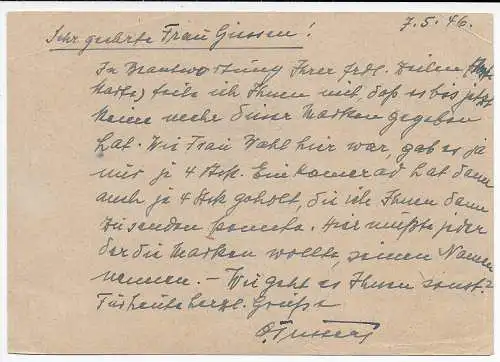 7.5.46.
Sehr geehrte Frau Giessen!
In Beantwortung Ihrer frdl. Zeilen
Karte) teile ich Ihnen mit, daß es bis jetzt
keine mehr dieser Marken gegeben
hat. Wie Frau Wahl hier war, gab es ja
nur je 4 Stck. Ein Kamerad hat dann
auch je 4 Stck geholt, die ich Ihnen dann
zusenden konnte. Hier mußte jeder
der die Marken wollte, seinen Namen
nennen. – Wie geht es Ihnen sonst?
Für heute herzl. Grüße